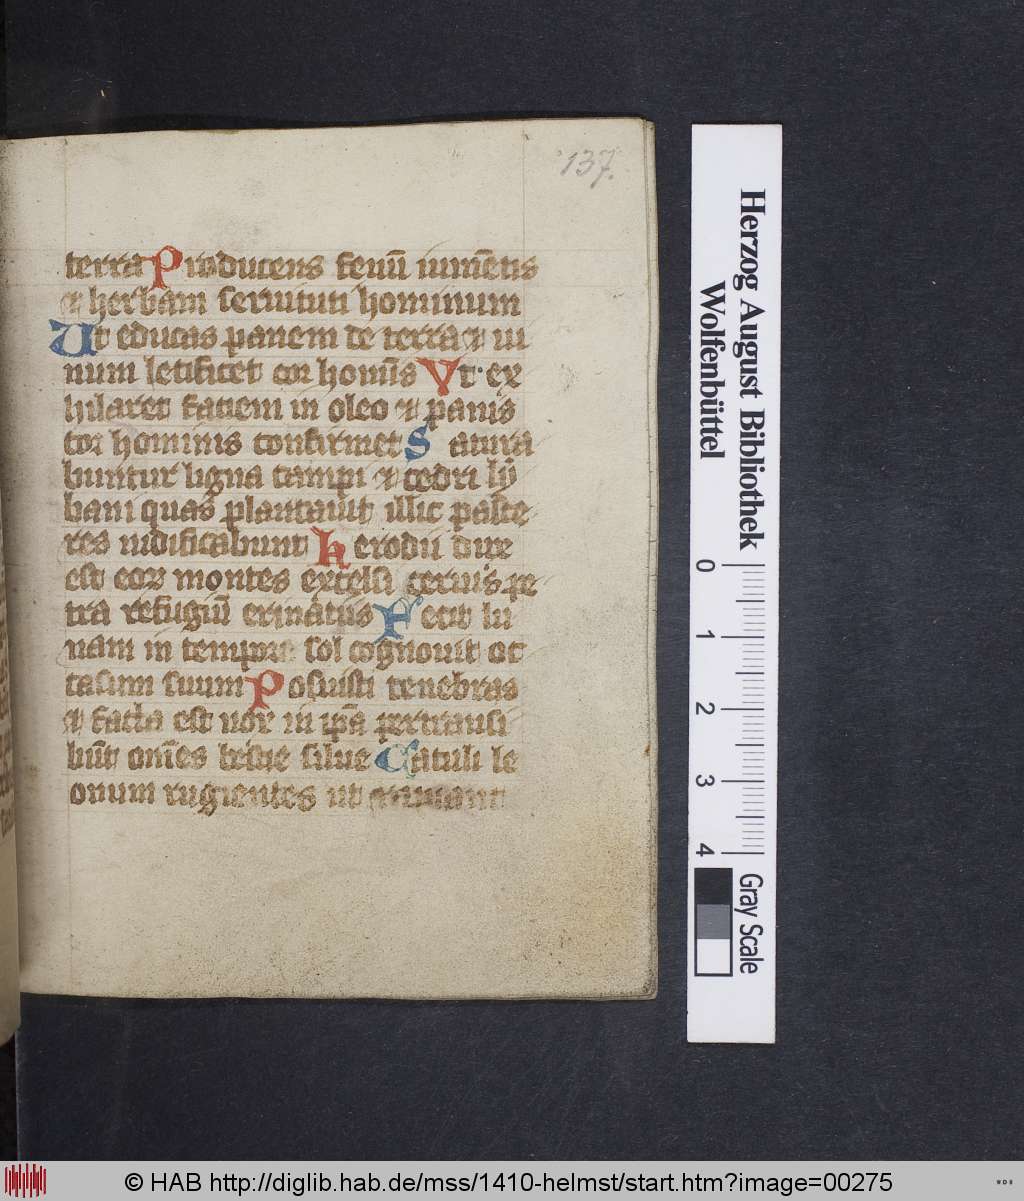 137.
terra Producens fenū iumētis
et herbam seruituti hominum
Ut educas panem de terra et ui
num letificet cor homīs Vt ex
hilaret faciem in oleo et panis
cor hominis confirmet Satura
buntur ligna campi et cedri ly
bani quas plantauit illic passe
res nidificabunt herodii dux
est eor montes excelsi ceruis pe
tra refugiū erinatiis Fecit lu
nam in tempore sol cognouit oc
casum suum Posuisti tenebras
et facta est nox in ip̄a pertransi
būt om̄es bestie silue Catuli le
onum rugientes ut
Herzog August Bibliothek
Wolfenbüttel
0 1 2 3 4
Gray Scale
© HAB http://diglib.hab.de/mss/1410-helmst/start.htm?image=00275